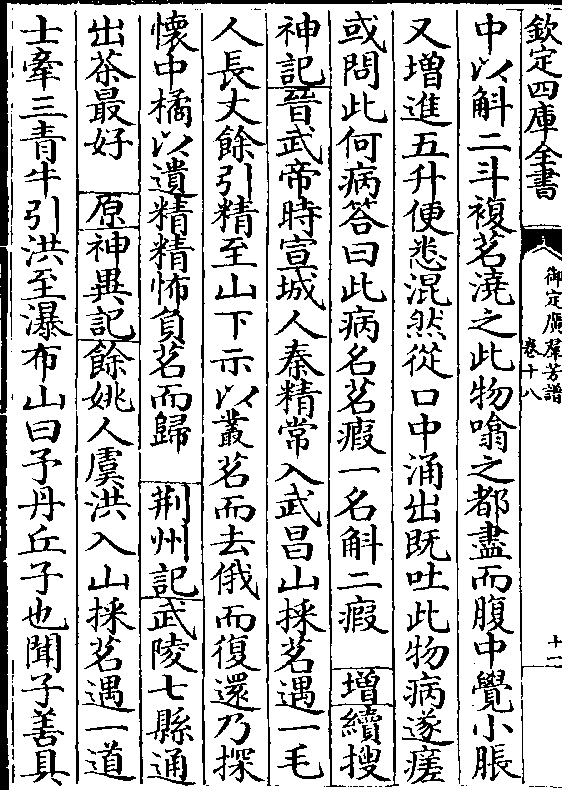 欽定四庫全書
御定廣羣芳譜
卷十八
十一
中以斛二斗複茗澆之此物噏之都盡而腹中覺小脹
又增進五升便悉混然從口中涌出既吐此物病遂瘥
或問此何病答曰此病名茗瘕一名斛二瘕　增續搜
神記晉武帝時宣城人秦精常入武昌山採茗遇一毛
人長丈餘引精至山下示以叢茗而去俄而復還乃探
懷中橘以遺精精怖負茗而歸　荆州記武陵七縣通
出茶最好　原神異記餘姚人虞洪入山採茗遇一道
士牽三青牛引洪至瀑布山曰予丹丘子也聞子善具